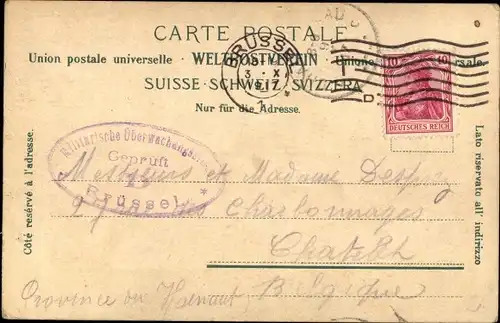 CARTE POSTALE
Union postale universelle WELTPOSTVEREIN Unione postale universale.
SUISSE · SCHWEIZ · SVIZZERA
Nur für die Adresse.
BRÜSSEL
3 · X
1
10 10
DEUTSCHES REICH
Militärische Überwachungsstelle
Geprüft
Brüssel *
Messieurs et Madame
Charbonnages
Province du Hainaut Belgique
Côté resérvé à l'adresse.
Lato riservato all' indirizzo